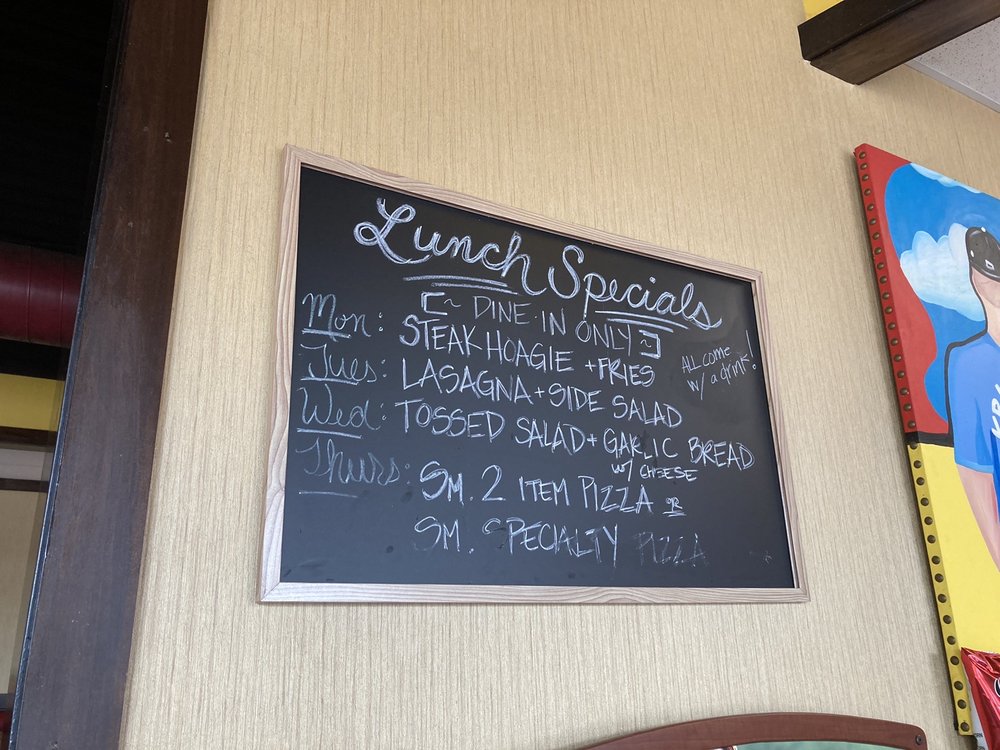 Lunch Specials
[~ DINE IN ONLY ~]
Mon: STEAK HOAGIE + FRIES
ALL come w/ a drink!
Tues: LASAGNA + SIDE SALAD
Wed: TOSSED SALAD + GARLIC BREAD
w/ CHEESE
Thurs: SM. 2 ITEM PIZZA OR
SM. SPECIALTY PIZZA